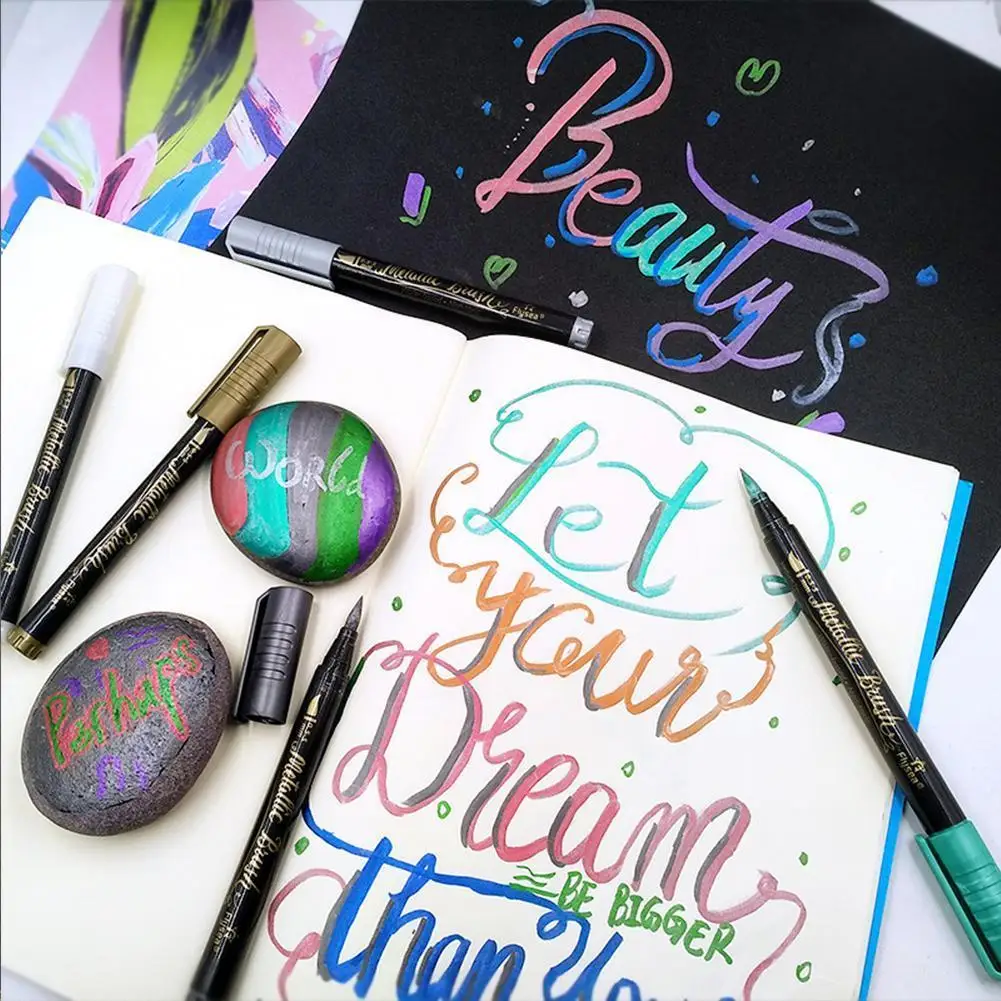 Beauty
Metallic Brush
Flysea
Metallic Brush
Metallic Brush
Flysea
WORLD
Let
your
Metallic Brush
Flysea
Perhaps
Dream
Metallic Brush
Flysea
BE BIGGER
than